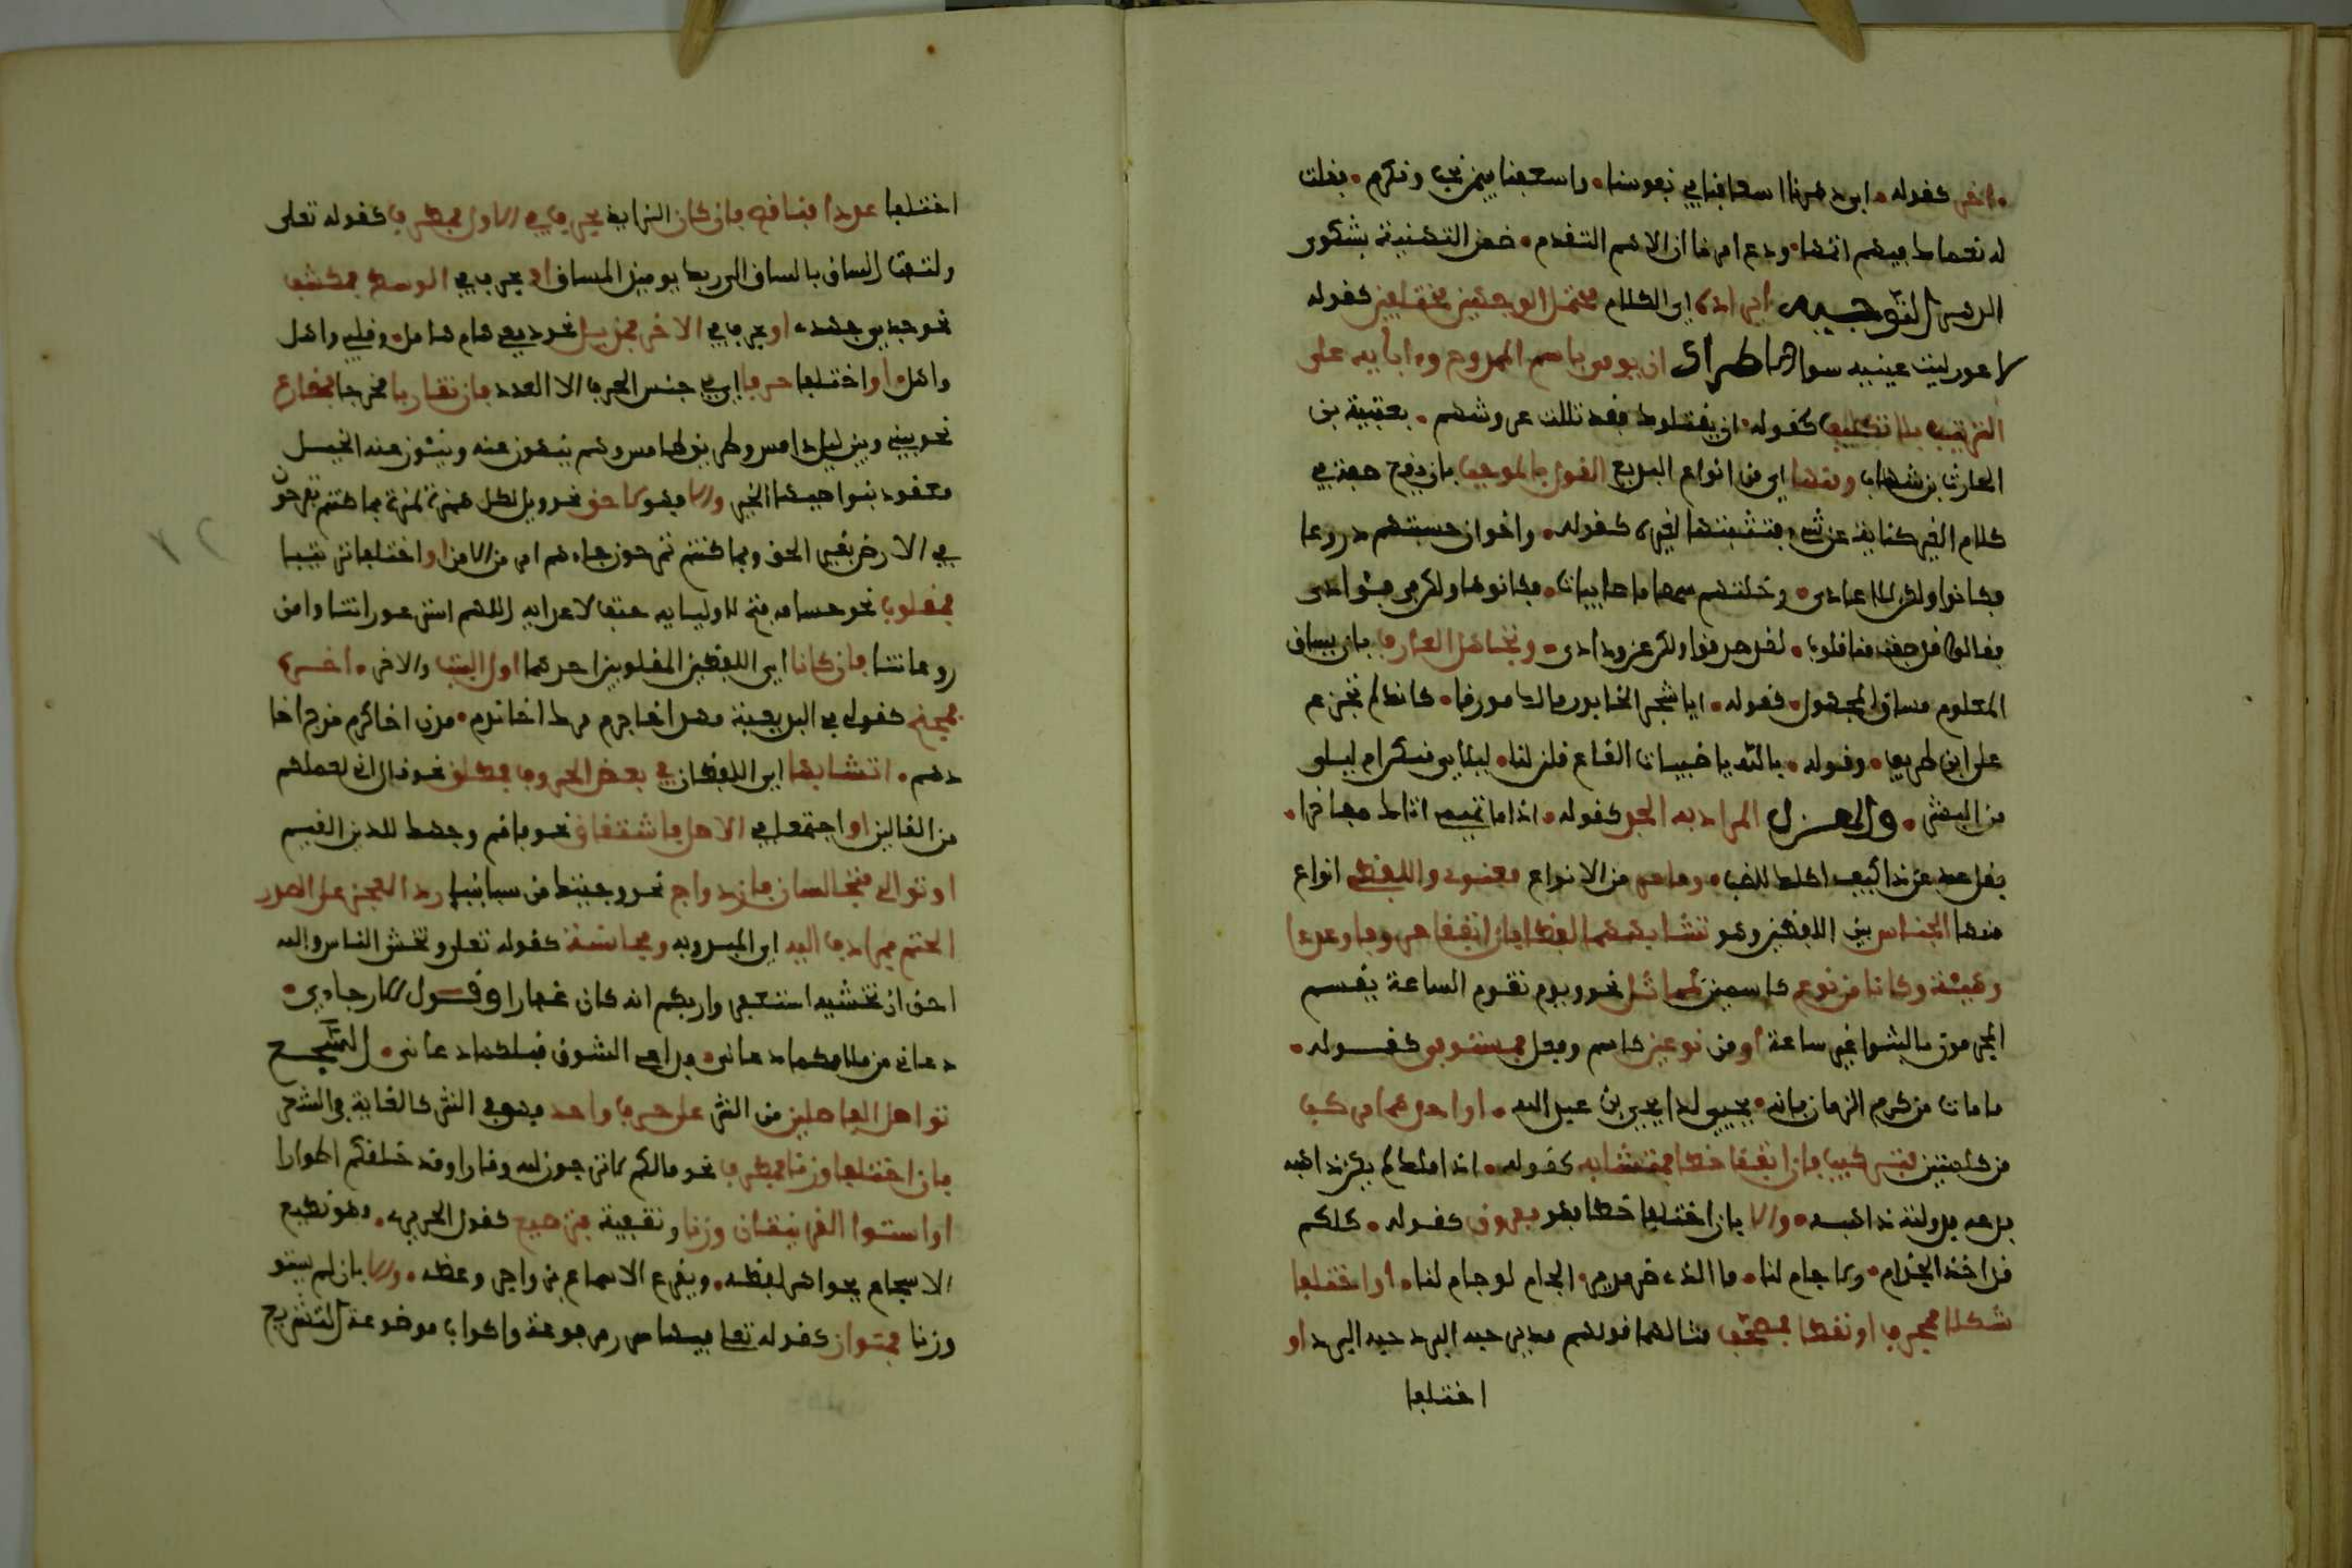 اخر كقوله • ابى دهرنا اسعافنا في نفوسنا • واسعفنا فيمن نحب ونكرم • فقلت
له نعماك فيهم اتمها • ودع امرنا ان الاهم المقدم • ضمن التهنية بشكوى
الدهر التوجيه ايراده اي الكلام محتمل الوجهين مختلفين كقوله
لاعور ليت عينيه سوا الاطراد ان يوتى باسم الممدوح وءابايه على
الترتيب بلا تكليف كقوله • ان يقتلوك فقد ثللت عروشهم • بعتيبة بن
الحارث بن شهاب ومنها اي من انواع البديع القول بالموجب بان يقع صفة في
كلام الغير كناية عن شيء فتثبتها لغيره كقوله • واخوان حسبتهم دروعا
فكانوا ولكن للاعادى • وخلتهم سهاما صايبات • فكانوها ولكن في فؤادى
وقالوا قد صفت منا قلوب • لقد صدقوا ولكن عن ودادى • وتجاهل العارف بان يساق
المعلوم مساق المجهول • كقوله • ايا شجر الخابور مالك مورقا • كانك لم تجزع
على ابن طريف • وقوله • بالله يا ظبيات القاع قلن لنا • ليلاي منكن ام ليلى
من البشر • والهزل المراد به الجد كقوله • اذا ما تميمي اتاك مفاخرا •
فقل عد عن ذا كيف اكلك للضب • وما مر من الانواع معنوي واللفظي انواع
منها الجناس بين اللفظين وهو تشابههما لفظا فان اتفقا حروفا وعددا
وهيئة وكانا من نوع كاسمين فمماثل نحو ويوم تقوم الساعة يقسم
المجرمون ما لبثوا غير ساعة او من نوعين كاسم وفعل فمستوفى كقوله •
ما مات من كرم الزمان فانه • يحيى لدا يحيى بن عبد الله • او احدهما مركب
من كلمتين فتركيب فان اتفقا خطا فمتشابه كقوله • اذا ملك لم يكن ذا هبه
فدعه فدولته ذاهبه • والا بان اختلفا خطا فمفروق كقوله • كلكم
قد اخذ الجام • ولا جام لنا • ما الذي ضر مدير الجام لو جاملنا • او اختلفا
شكلا فمحرف او نقطا فمصحف مثالهما قولهم جبة البرد جنة البرد او
اختلفا
اختلفا عددا فناقص فان كان الزيادة بحرف في الاول فمطرف كقوله تعلى
والتفت الساق بالساق الى ربك يوميذ المساق او بحرف في الوسط فمكتنف
نحو جدي جهدي او بحرف في الاخر فمذيل نحو دمعي هام هامل • وقلبي واهل
واهل • او اختلفا حرفا اي في جنس الحرف لا العدد فان تقاربا مخرجا فمضارع
نحو بيني وبين ليل دامس وطريق طامس وهم ينهون عنه وينئون عنه الخيل
معقود بنواصيها الخير والا فهو لاحق نحو ويل لكل همزة لمزة بما كنتم تفرحون
في الارض بغير الحق وبما كنتم تمرحون جاءهم امر من الامن او اختلفا ترتيبا
فمقلوب نحو حسامه فتح لاوليايه حتف لاعدايه اللهم استر عوراتنا وامن
روعاتنا فان كانا اي اللفظين المقلوبين احدهما اول البيت والاخر • اخره
فمجنح كقولي في البديعية
دهم • او تشابها اي اللفظان في بعض الحروف فمطلق نحو قال اني لعملكم
من القالين او اجتمعا في الاصل فاشتقاق نحو فاقم وجهك للدين القيم
او توالى متجانسان فازدواج نحو وجئتك من سبا بنبا رد العجز على الصدر
الختم بمرادف البدء اي المبدو به ومجانسه كقوله تعلى وتخشى الناس والله
احق ان تخشيه استغفروا ربكم انه كان غفارا وقول الارجاني •
دعاني من ملامكما دعاني • فداعي الشوق قبلكما دعاني • السجع
تواطؤ الفاصلين من النثر على حرف واحد فهو في النثر كالقافية في الشعر
فان اختلفا وزنا فمطرف نحو مالكم لا ترجون لله وقارا وقد خلقكم اطوارا
او استوا القرينتان وزنا وتقفية فترصيع كقول الحريري • فهو يطبع
الاسجاع بجواهر لفظه • ويقرع الاسماع بزواجر وعظه • والا بان لم يستو
وزنا فمتواز كقوله تعلى فيها سرر مرفوعة واكواب موضوعة التشريع